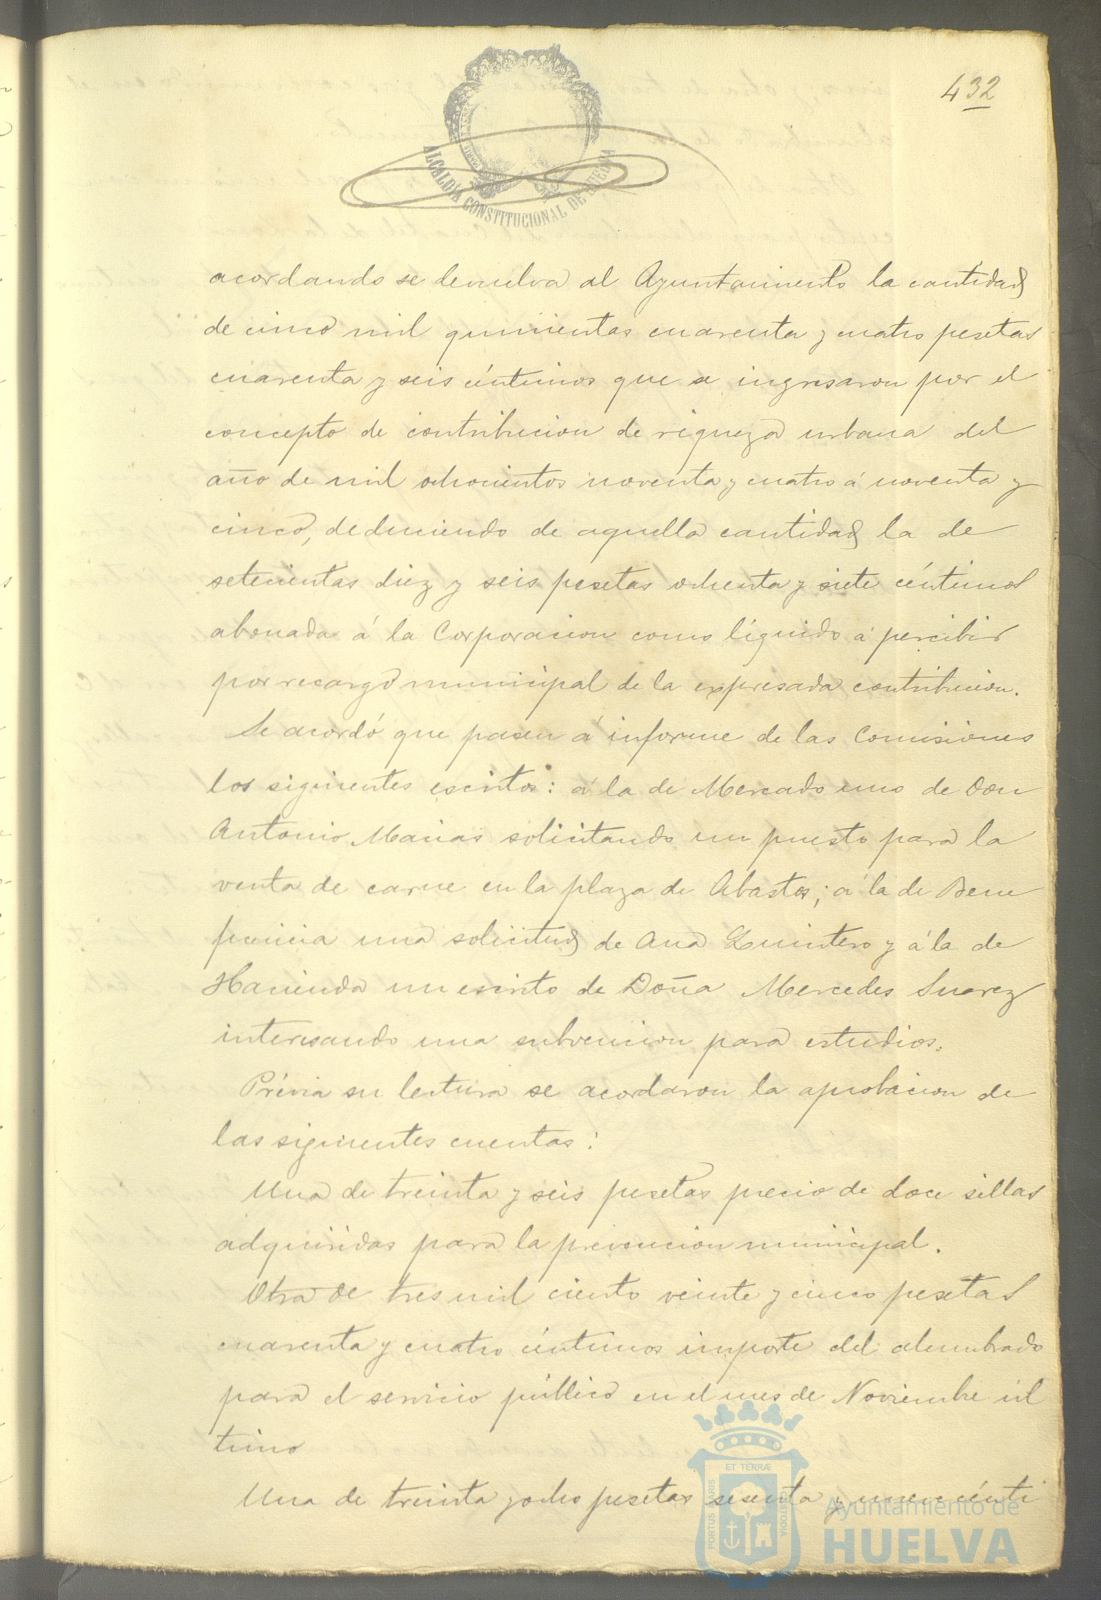 432
ALCALDÍA CONSTITUCIONAL DE HUELVA
acordando se devuelva al Ayuntamiento la cantidad
de cinco mil quinientas cuarenta y cuatro pesetas
cuarenta y seis céntimos que se ingresaron por el
concepto de contribucion de riqueza urbana del
año de mil ochocientos noventa y cuatro á noventa y
cinco, deduciendo de aquella cantidad la de
setecientas diez y seis pesetas ochenta y siete céntimos
abonada á la Corporacion como líquido á percibir
por recargo municipal de la expresada contribucion.
Se acordó que pasen á informe de las Comisiones
los siguientes escritos: á la de Mercado uno de Don
Antonio Marias solicitando un puesto para la
venta de carne en la plaza de Abastos; á la de Bene
ficencia una solicitud de Ana Quintero y á la de
Hacienda un escrito de Doña Mercedes Suarez
interesando una subvencion para estudios.
Prévia su lectura se acordaron la aprobacion de
las siguientes cuentas:
Una de treinta y seis pesetas precio de doce sillas
adquiridas para la prevencion municipal.
Otra de tres mil ciento veinte y cinco pesetas
cuarenta y cuatro céntimos importe del alumbrado
para el servicio público en el mes de Noviembre úl
timo
Una de treinta y ocho pesetas sesenta y nueve cénti
PORTUS MARIS ET TERRÆ CUSTODIA
Ayuntamiento de
HUELVA